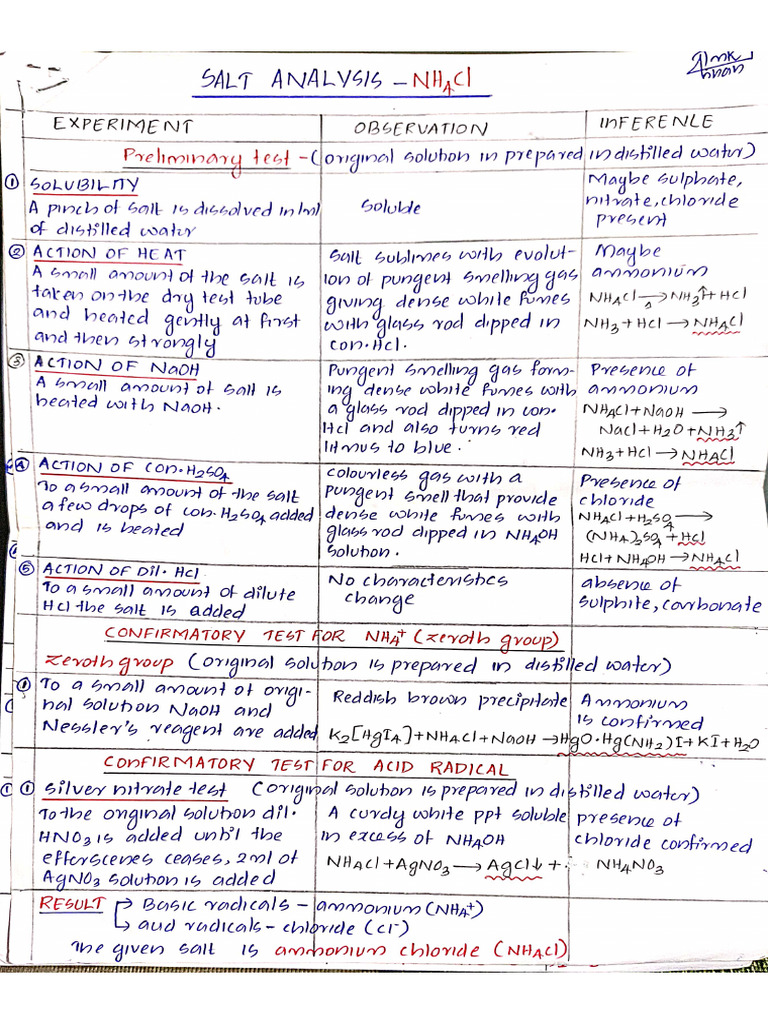 SALT ANALYSIS - NH4Cl
EXPERIMENT
OBSERVATION
INFERENCE
Preliminary test - (original solution in prepared in distilled water)
① SOLUBILITY
A pinch of salt is dissolved in 1ml
of distilled water
Soluble
Maybe sulphate,
nitrate, chloride
present
② ACTION OF HEAT
A small amount of the salt is
taken on the dry test tube
and heated gently at first
and then strongly
Salt sublimes with evolut-
ion of pungent smelling gas
giving dense white fumes
with glass rod dipped in
con.Hcl.
Maybe
ammonium
NH4Cl →Δ NH3↑ + HCl
NH3 + HCl → NH4Cl
③ ACTION OF NaOH
A small amount of salt is
heated with NaOH.
Pungent smelling gas form-
ing dense white fumes with
a glass rod dipped in con.
Hcl and also turns red
litmus to blue.
Presence of
ammonium
NH4Cl + NaOH →
NaCl + H2O + NH3↑
NH3 + HCl → NH4Cl
④ ACTION OF CON.H2SO4
To a small amount of the salt
a few drops of con.H2SO4 added
and is heated
Colourless gas with a
pungent smell that provide
dense white fumes with
glass rod dipped in NH4OH
solution.
Presence of
chloride
NH4Cl + H2SO4 →
(NH4)2SO4 + HCl
HCl + NH4OH → NH4Cl
⑤ ACTION OF Dil. Hcl
To a small amount of dilute
HCl the salt is added
No characteristics
change
absence of
sulphite, carbonate
CONFIRMATORY TEST FOR NH4+ (Zeroth group)
Zeroth group (original solution is prepared in distilled water)
① To a small amount of origi-
nal solution NaOH and
Nessler's reagent are added
Reddish brown precipitate
Ammonium
is confirmed
K2[HgI4] + NH4Cl + NaOH → HgO.Hg(NH2)I + KI + H2O
CONFIRMATORY TEST FOR ACID RADICAL
① Silver nitrate test (original solution is prepared in distilled water)
To the original solution dil.
HNO3 is added until the
efferscenes ceases, 2ml of
AgNO3 solution is added
A curdy white ppt soluble
in excess of NH4OH
NH4Cl + AgNO3 → AgCl↓ + NH4NO3
presence of
chloride confirmed
RESULT → Basic radicals - ammonium (NH4+)
→ acid radicals - chloride (cl-)
The given salt is ammonium chloride (NH4Cl)